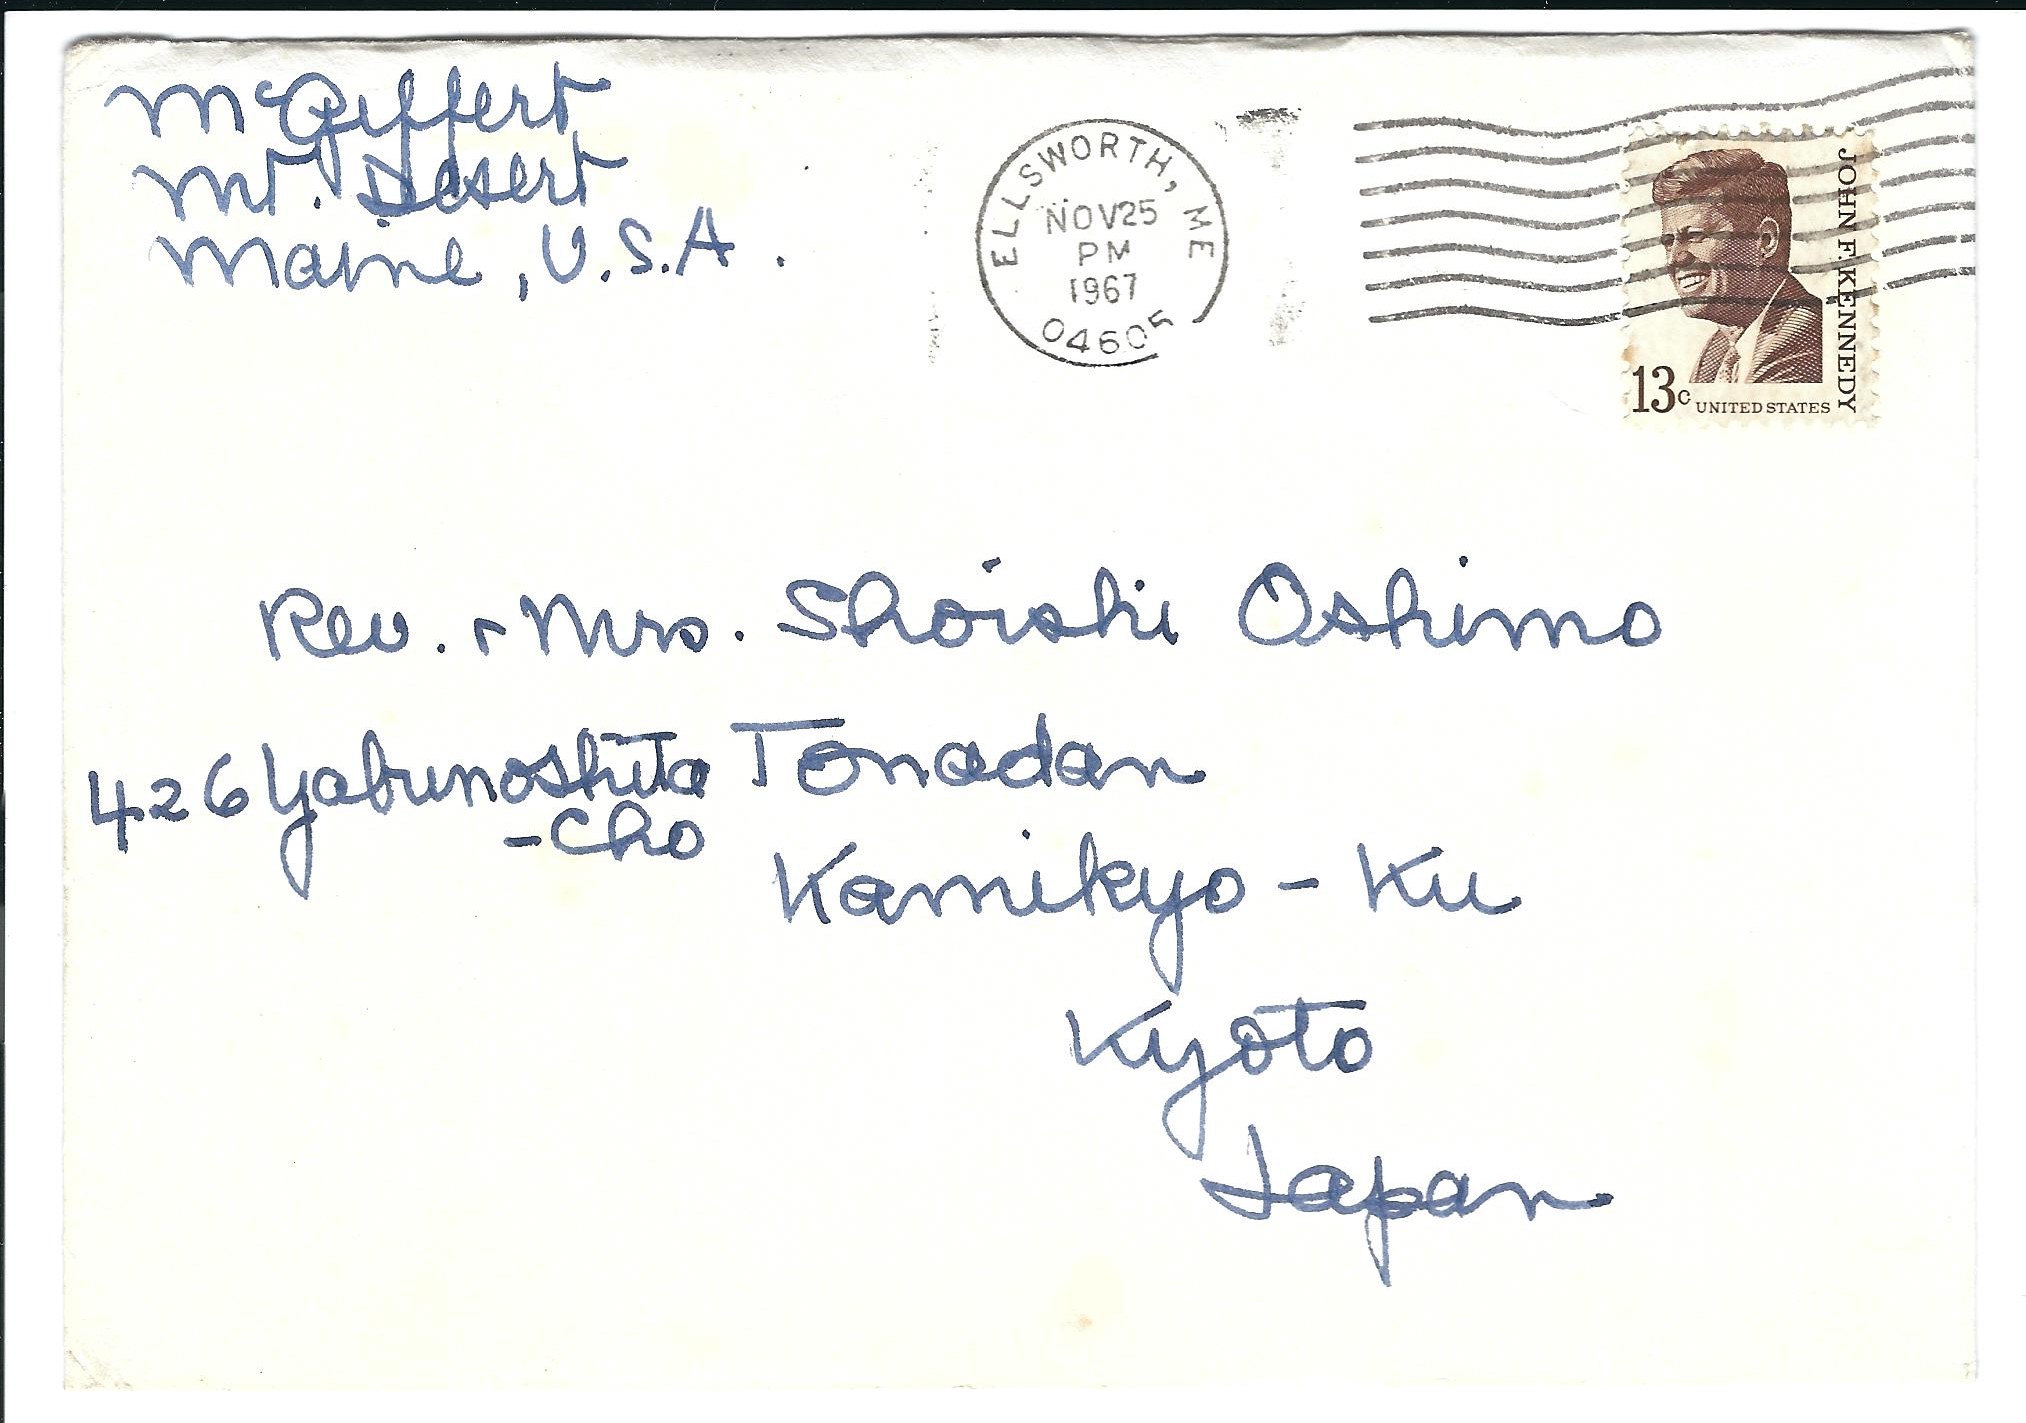 McGiffert
Mt. Desert
Maine, U.S.A.
ELLSWORTH, ME
NOV25
PM
1967
04605
JOHN F. KENNEDY
13c UNITED STATES
Rev. & Mrs. Shoishi Oshimo
426 Yabunoshita Tonodan
-Cho
Kamikyo-Ku
Kyoto
Japan